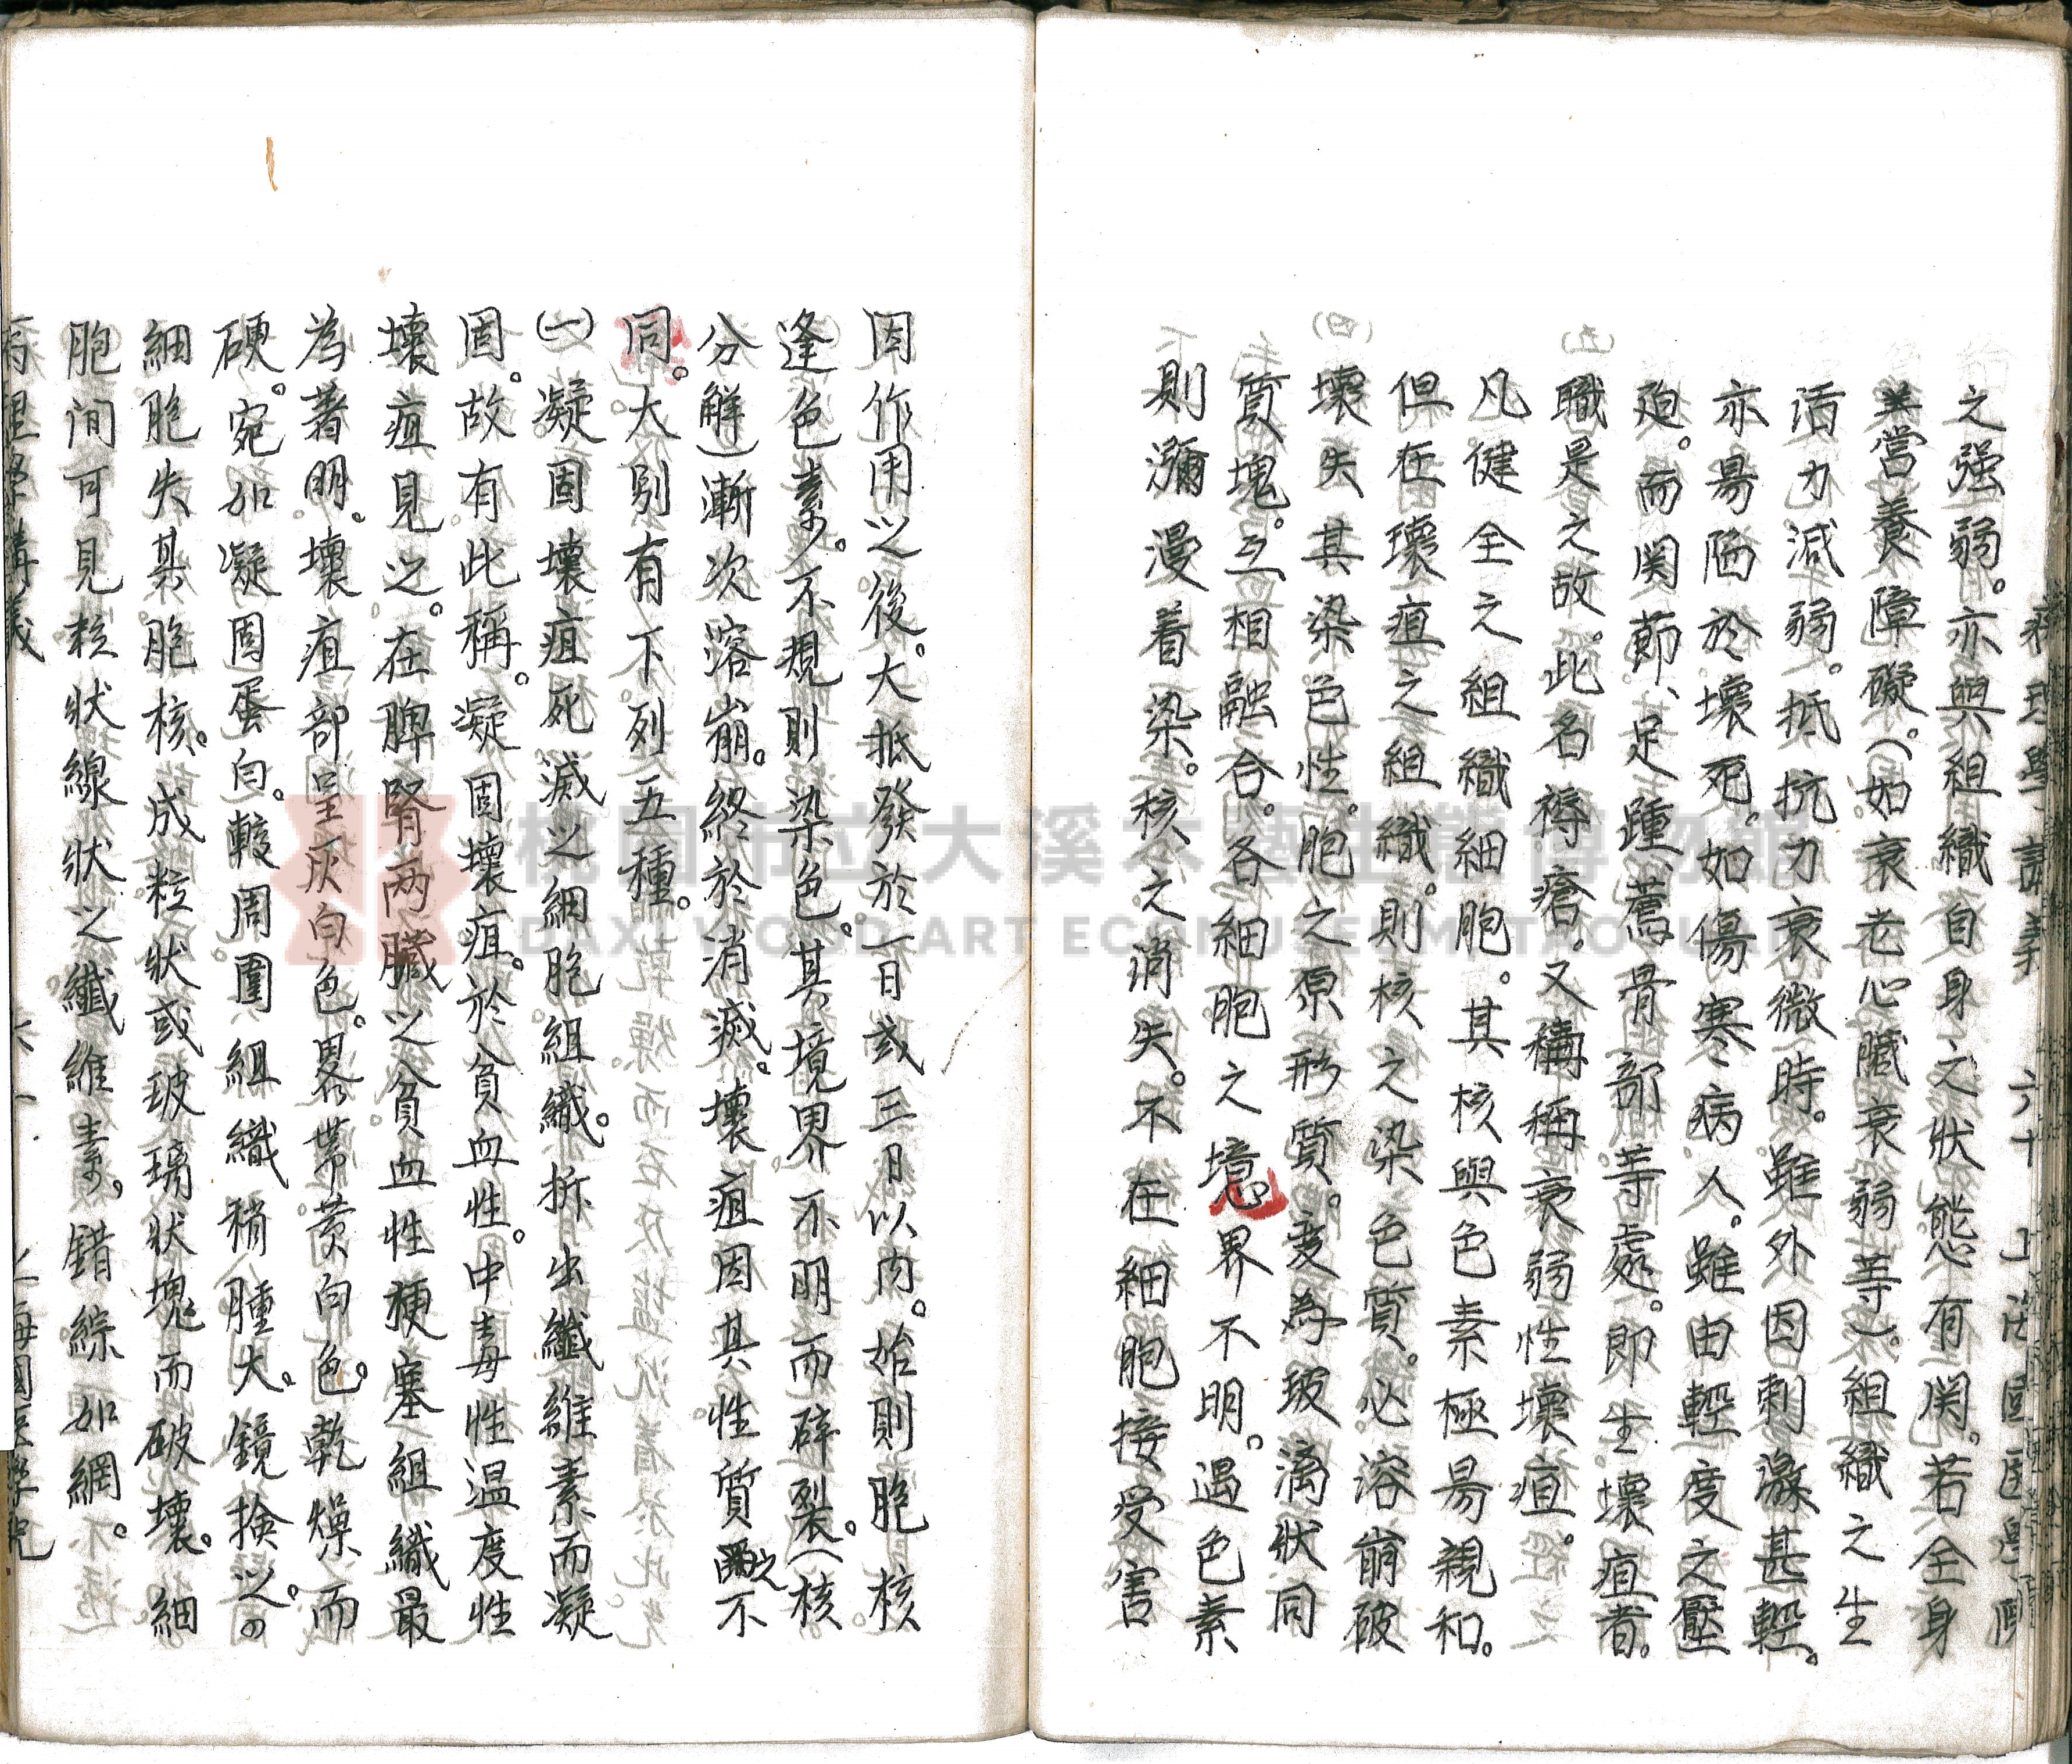 病理學講義 六十 上海國醫學院
之强弱。亦與組織自身之狀態有関。若全身
営養障礙。(如衰老心臟衰弱等)。組織之生
活力減弱。抵抗力衰微時。雖外因刺激甚輕。
亦易陋於壞死。如傷寒病人。雖由輕度之壓
廹。而関節、足踵、薦骨部等處。即生壞疽者。
職是之故。此名褥瘡。又稱衰弱性壞疽。
凡健全之組織細胞。其核與色素極易親和。
但在壞疽之組織。則核之染色質。必溶崩破
壞失其染色性。胞之原形質。変為玻漓狀同
質塊。互相融合。各細胞之境界不明。遇色素
則瀰漫着染。核之消失。不在細胞接受害
因作用之後。大抵發於一日或三日以内。始則胞核
逢色素。不規則染色。其境界不明而碎裂。(核
分解)漸次溶崩。終於消滅。壞疽因其性質之不
同。大別有下列五種。
(一)凝固壞疽死滅之細胞組織。拆出纖維素而凝
固。故有此稱。凝固壞疽。於貧血性。中毒性温度性
壞疽見之。在脾腎两臟之貧血性梗塞組織最
為著明。壞疽部呈灰白色。畧帯黄白色。乾燥而
硬。宛如凝固蛋白。較周圍組織稍腫大。鏡撿之。の
細胞失其胞核。成粒狀或玻璃狀塊而破壞。細
胞间可見核狀線狀之纖維素，錯綜如網。
病理學講義 六十 上海國医學院
桃園市立大溪木藝生態博物館
DAXI WOOD ART ECOMUSEUM, TAOYUAN